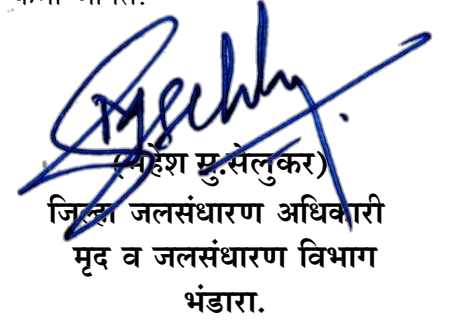 (महेश मु.सेलुकर)
जिल्हा जलसंधारण अधिकारी
मृद व जलसंधारण विभाग
भंडारा.